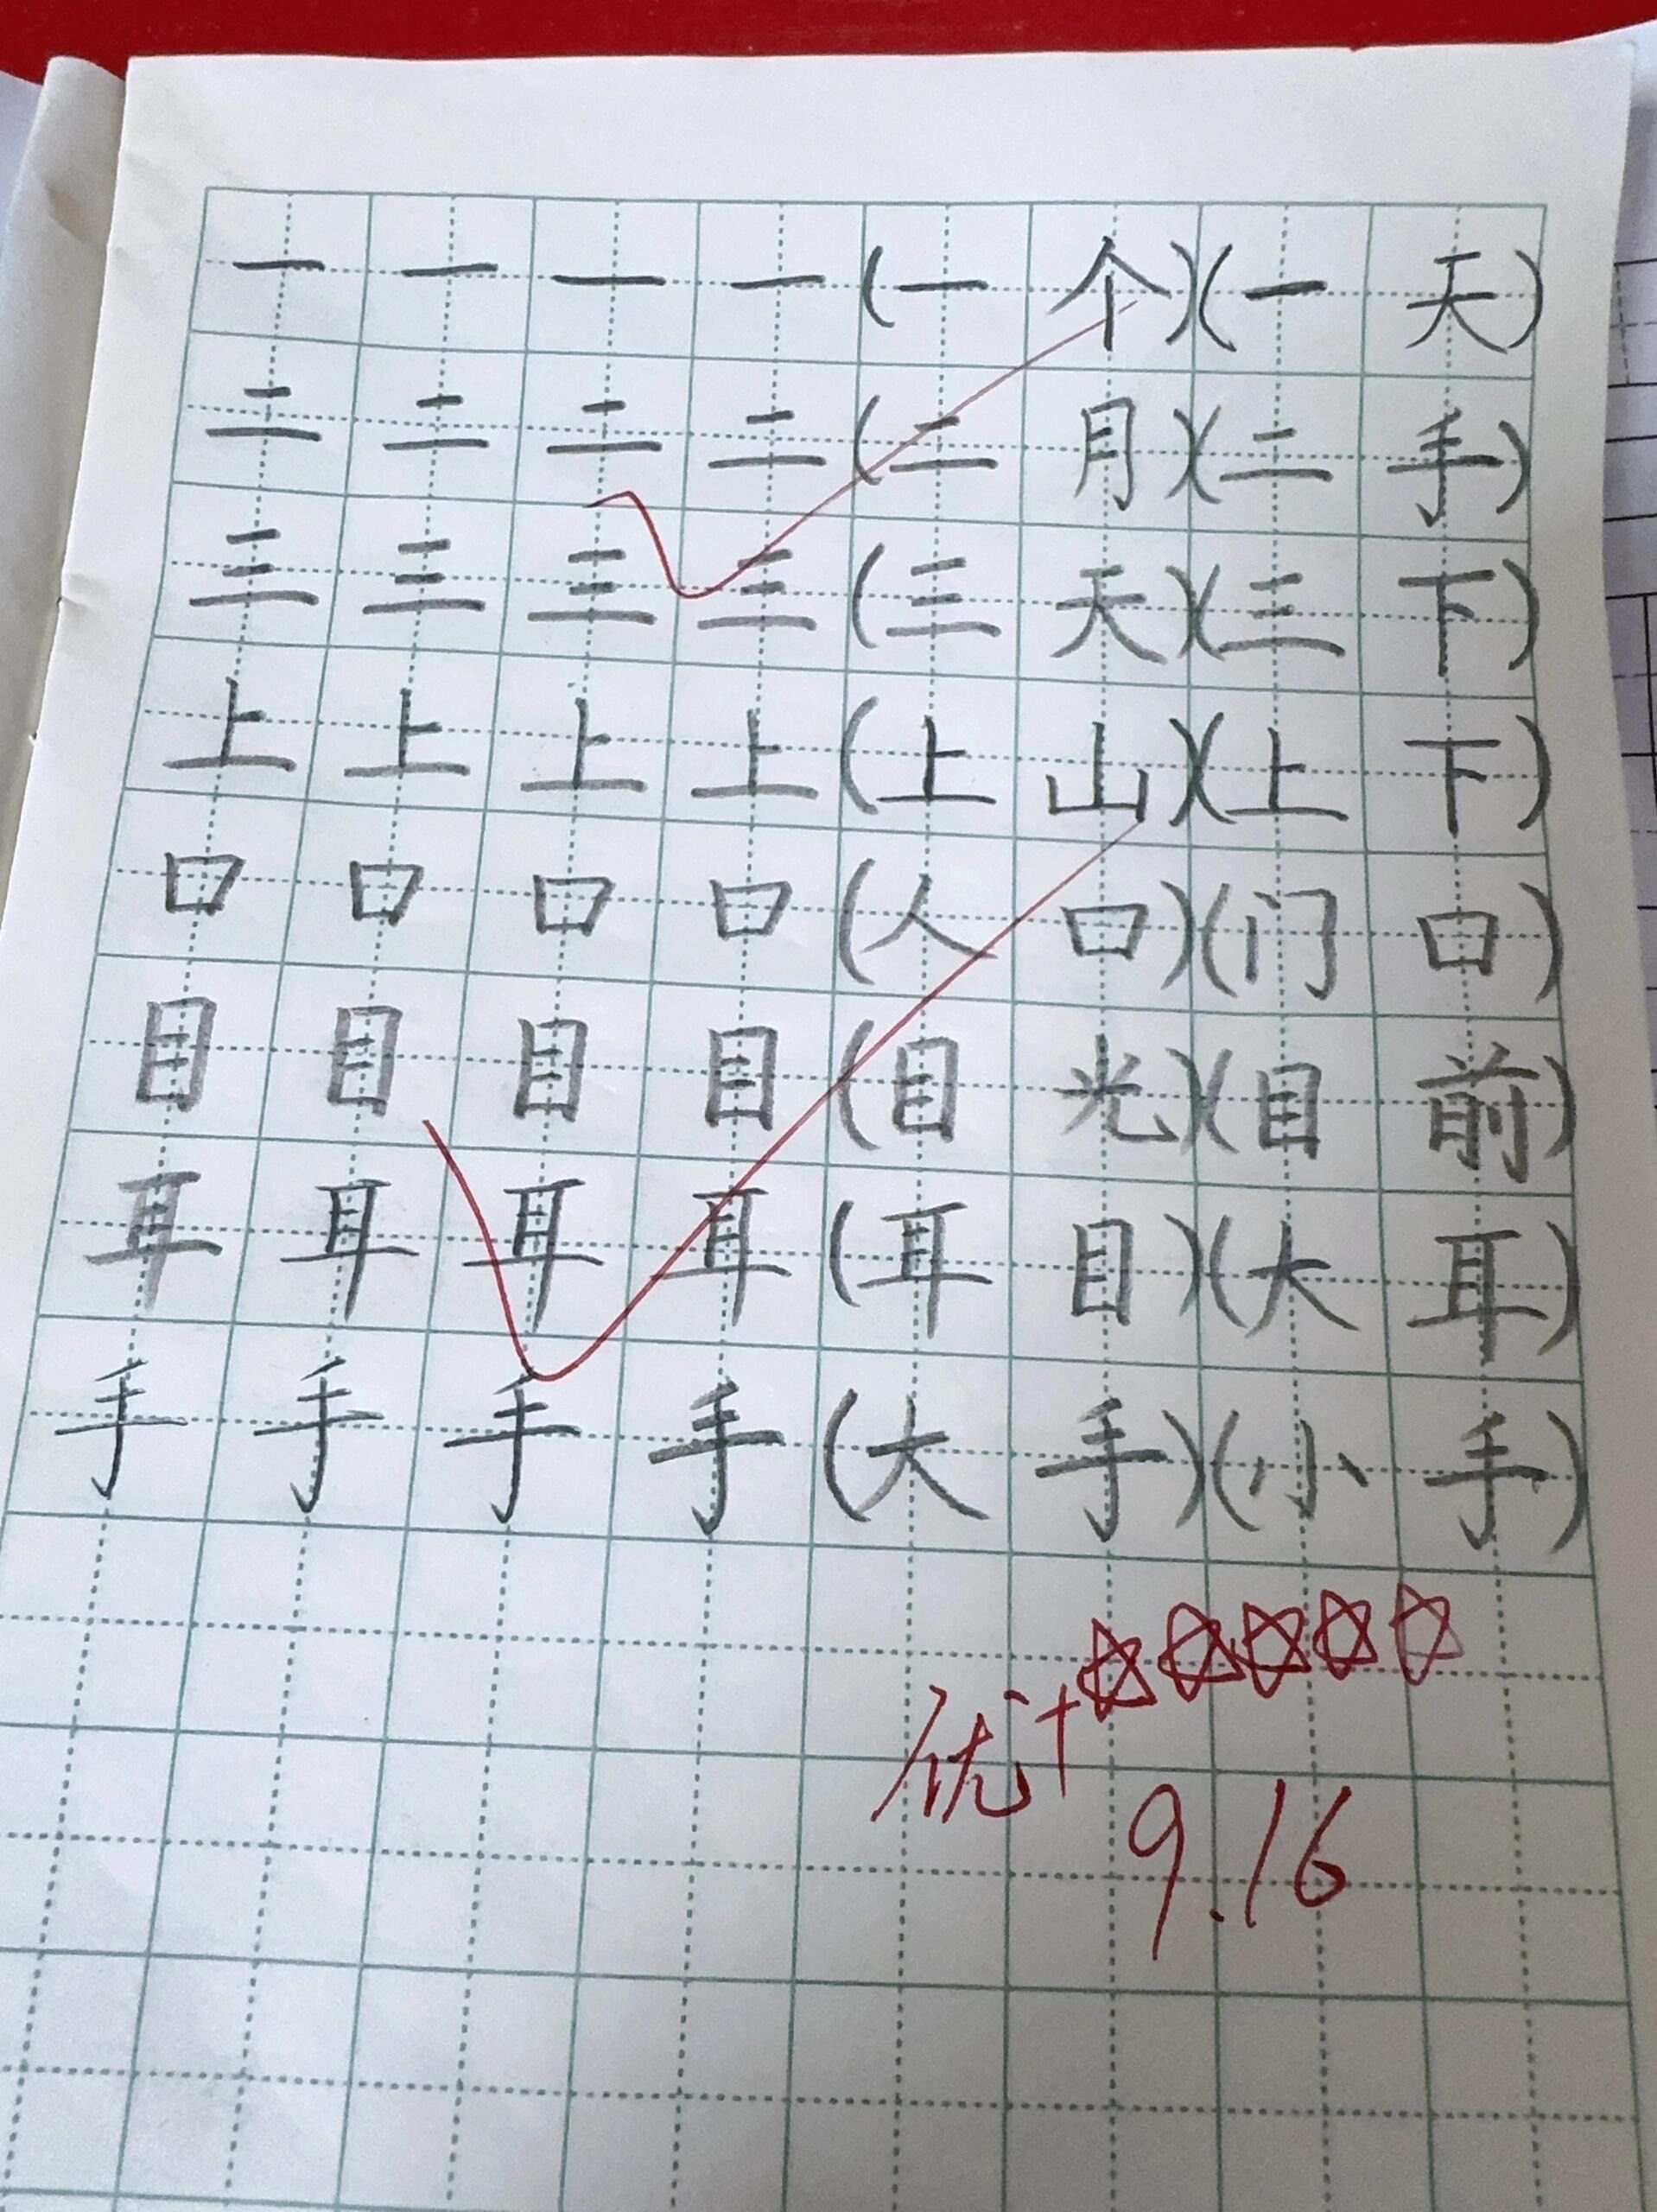 一 一 一 一 (一 个) (一 天)
二 二 二 二 (二 月) (二 手)
三 三 三 三 (三 天) (三 下)
上 上 上 上 (上 山) (上 下)
口 口 口 口 (人 口) (门 口)
目 目 目 目 (目 光) (目 前)
耳 耳 耳 耳 (耳 目) (大 耳)
手 手 手 手 (大 手) (小 手)
优+☆☆☆☆☆
9.16